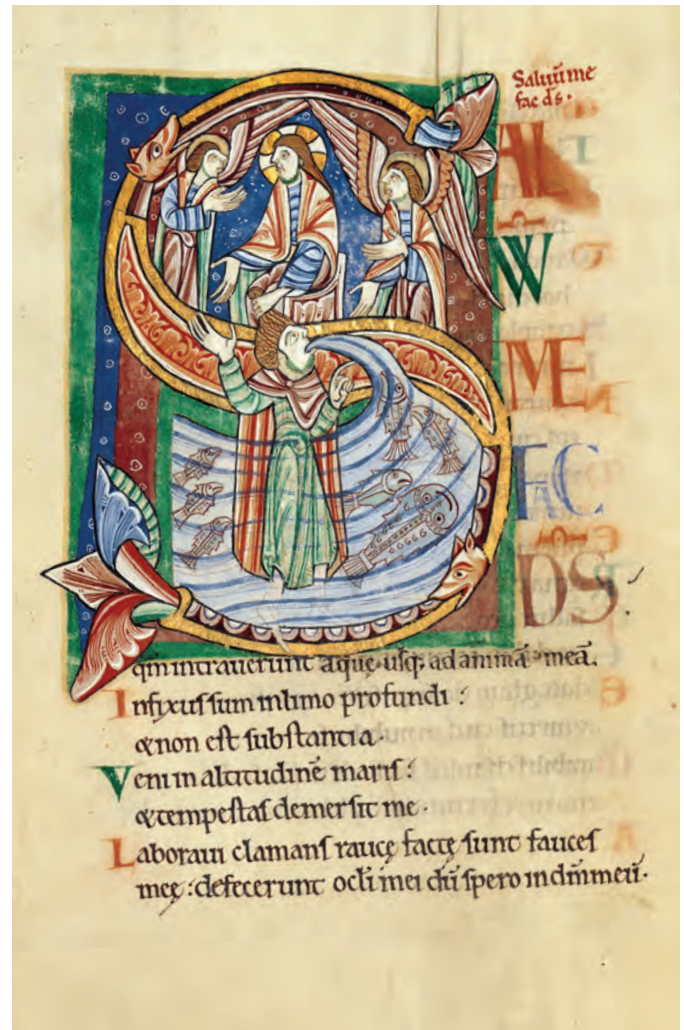 Saluū me
fac d̄s.
S
AL
VV
ME
FAC
D̄S.
qm̄ intrauerunt aquę usq; ad animā meā.
Infixus sum in limo profundi:
& non est substantia.
Veni in altitudinē maris:
& tempestas demersit me.
Laboraui clamans raucę factę sunt fauces
meę: defecerunt oc̄li mei dū spero in dm̄ meū.